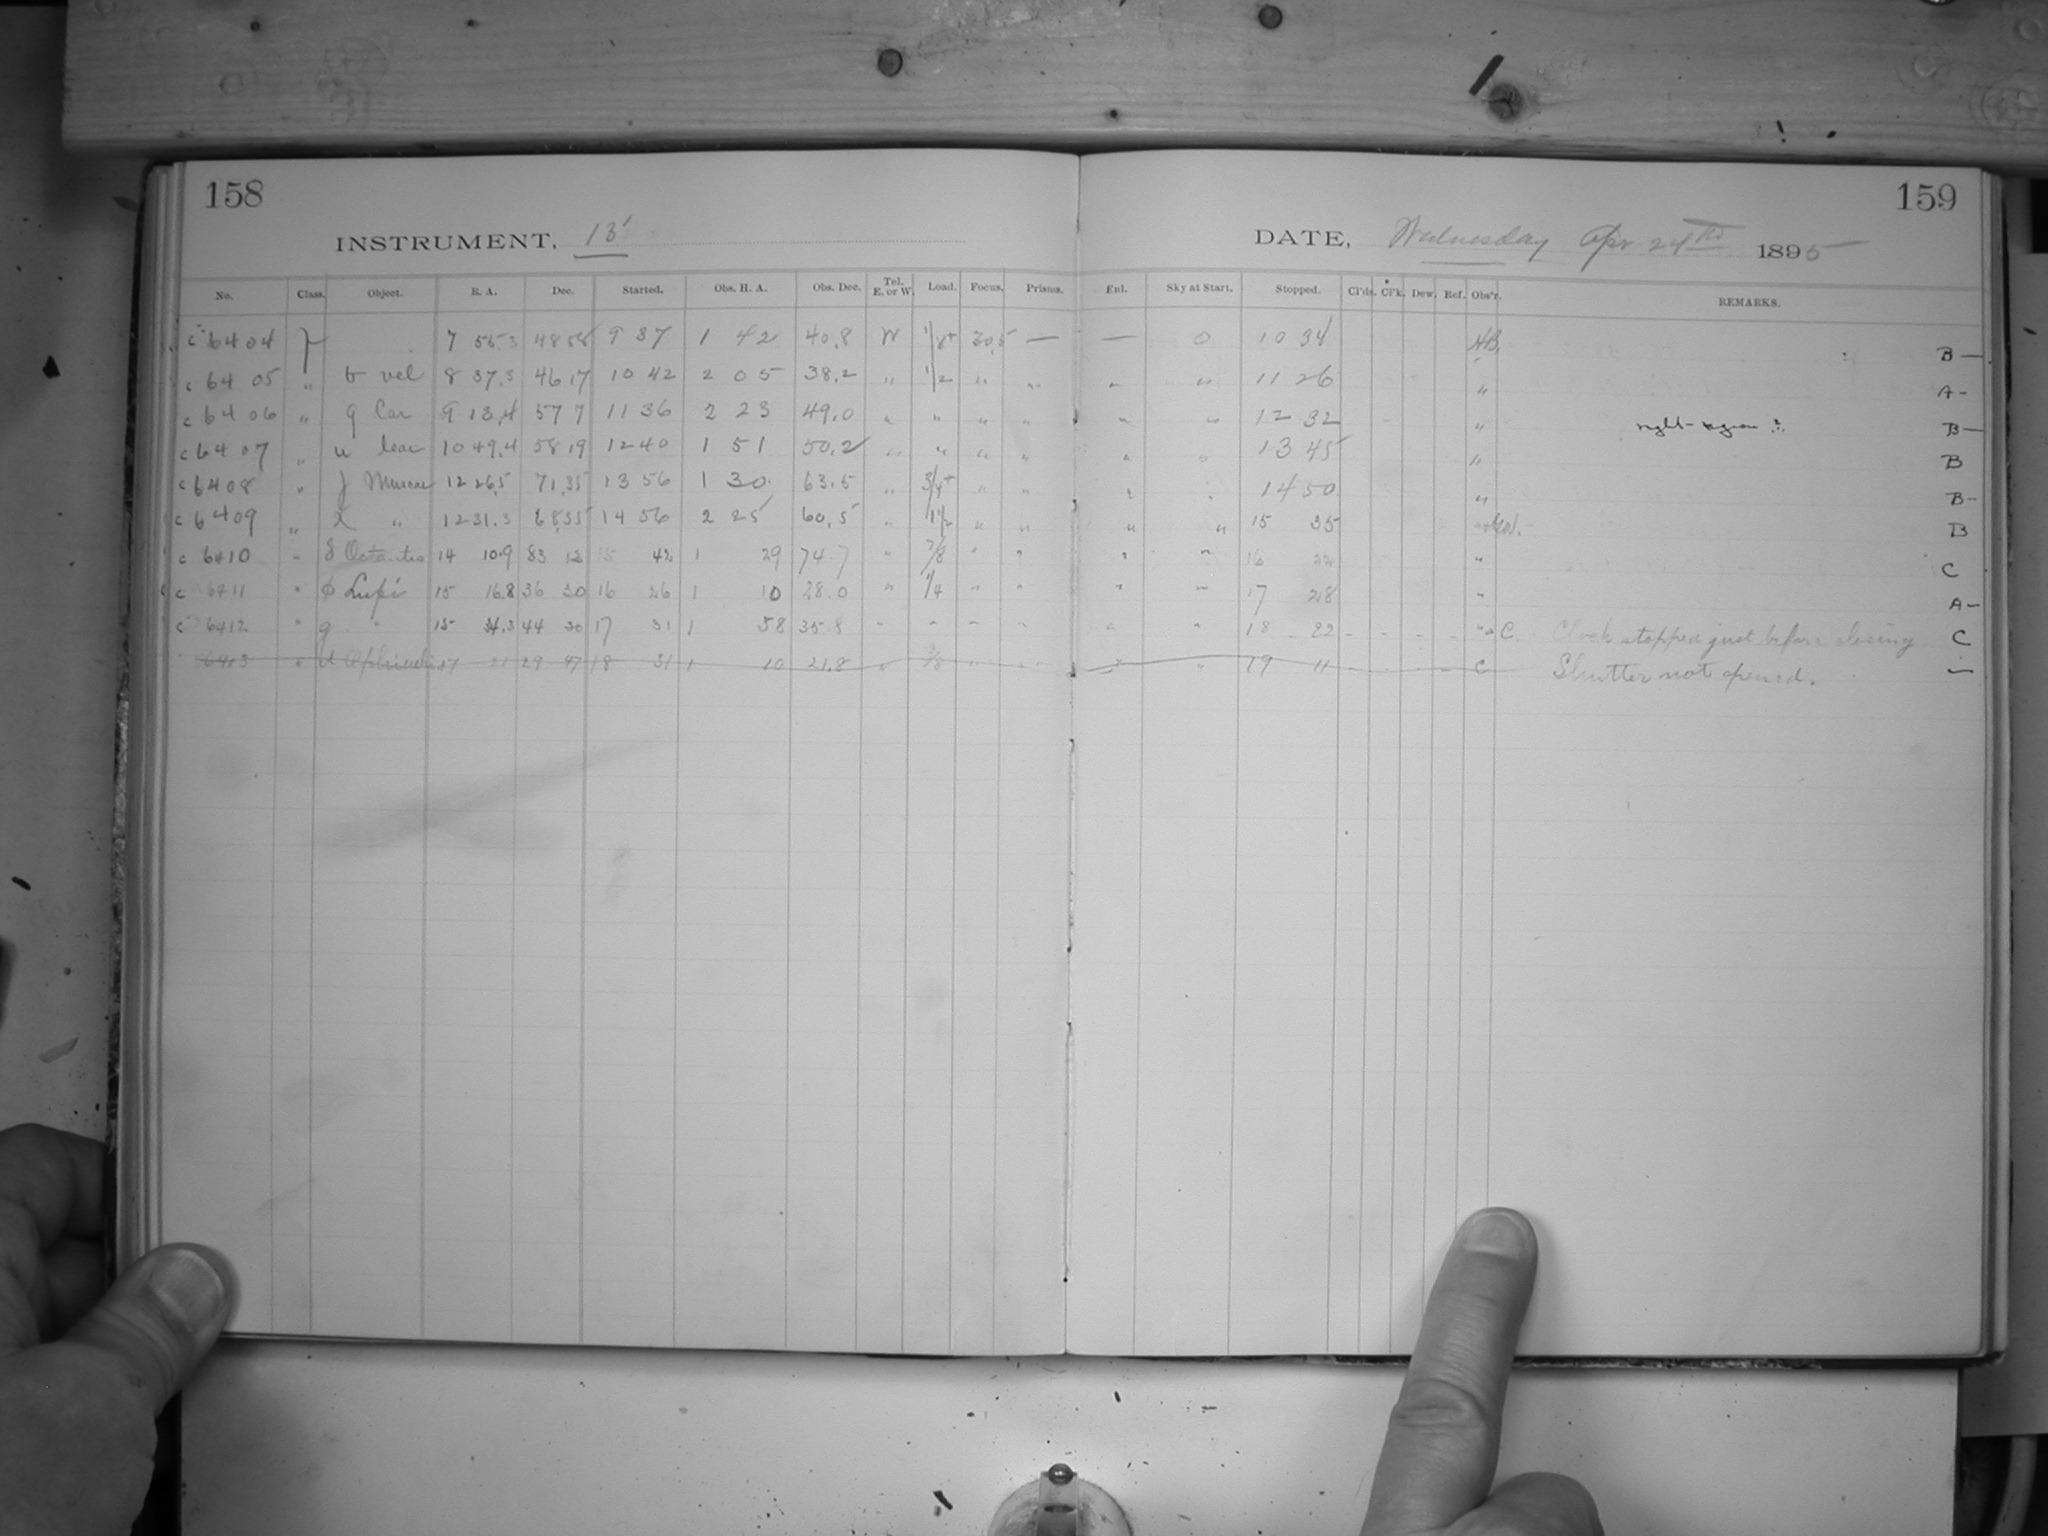 158
159
INSTRUMENT, 13"
DATE, Wednesday Apr 24th 1895
No. Class. Object. R. A. Dec. Started. Obs. H. A. Obs. Dec. Tel. E. or W. Load. Focus. Prisms. Enl. Sky at Start. Stopped. Cl'ds. Cl'k. Dew. Ref. Obs'r. REMARKS.
c 6404 7 55.3 48 58 9 37 1 42 40.8 W 30.5 — — 0 10 34 B —
c 6405 " b vel 8 37.3 46 17 10 42 2 05 38.2 " 1/2 " " " " 11 26 " A -
c 6406 " g Car 9 13.4 57 7 11 36 2 23 49.0 " " " " " " 12 32 " B —
c 6407 " u 10 49.4 58 19 12 40 1 51 50.2 " " " " " " 13 45 " B
c 6408 " f Muscae 12 26.5 71.35 13 56 1 30 63.5 " " " " " 14 50 " B -
c 6409 " " 12 31.3 68.35 14 56 2 25 60.5 " 1 1/2 " " " " 15 35 B
c 6410 " δ Octantis 14 10.9 83 12 15 42 1 29 74.7 " 7/8 " " " " 16 22 " C
c 6411 " φ Lupi 15 16.8 36 30 16 26 1 10 28.0 " 1/4 " " " " 17 28 " A -
c 6412 " g " 15 34.3 44 30 17 31 1 58 35.8 " " " " " " 18 22 - - - - " C Clock stopped just before closing C
6413 " d Ophiuchi 17 21 29 47 18 31 1 10 21.8 " 3/8 " " " " 19 11 - - - - C Shutter not opened. —